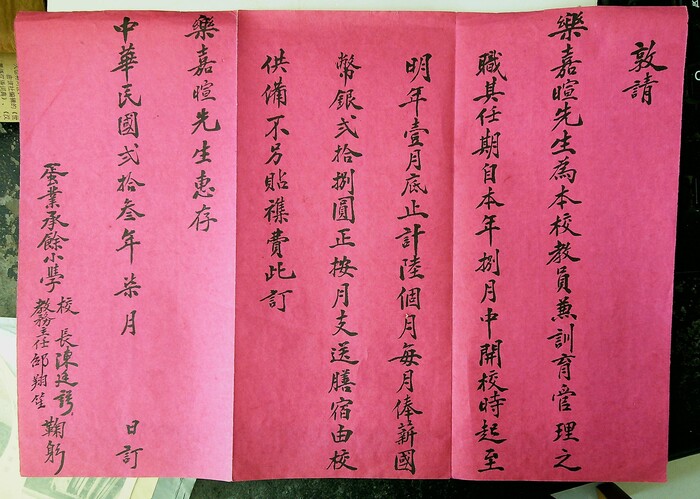 敦請
樂嘉暄先生為本校教員兼訓育管理之
職其任期自本年捌月中開校時起至
明年壹月底止計陸個月每月俸薪國
幣銀弍拾捌圓正按月支送膳宿由校
供備不另貼襍費此訂
樂嘉暄先生惠存
中華民國弍拾叁年柒月 日訂
蛋業承餘小學 校長陳廷
教務主任邱翔笙 鞠躬